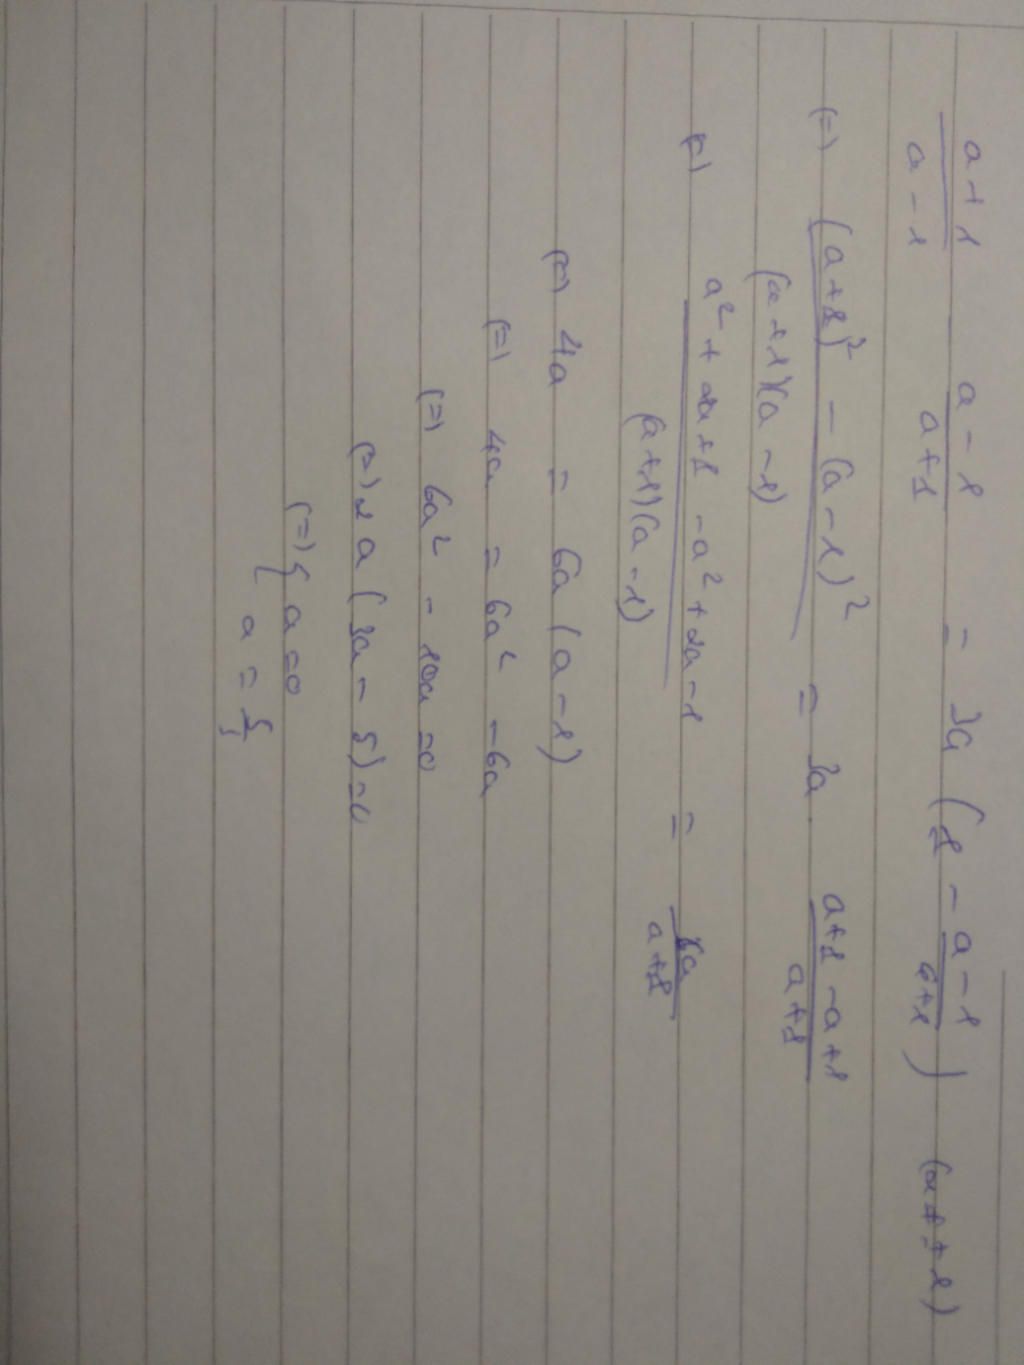 a+1/a-1   a-1/a+1 = 3a (1 - a-1/a+1) (a ≠ ±1)
(=) (a+1)² - (a-1)²/(a+1)(a-1) = 3a . a+1-a+1/a+1
(=) a²+2a+1 -a²+2a-1/(a+1)(a-1) = 6a/a+1
(=) 4a = 6a(a-1)
(=) 4a = 6a² - 6a
(=) 6a² - 10a = 0
(=) 2a(3a-5) = 0
(=) { a=0
a = 5/3